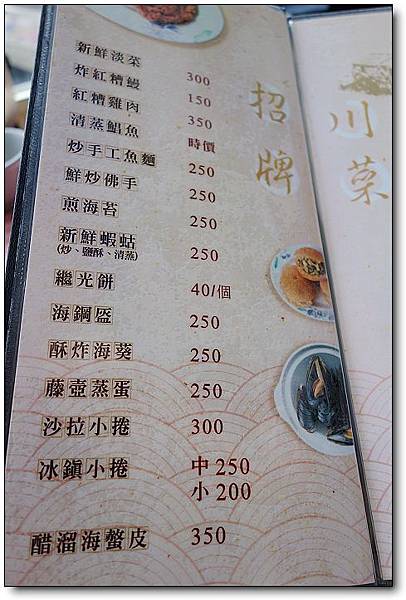 新鮮淡菜 300
炸紅糟鰻 150
紅糟雞肉 350
清蒸鯧魚 時價
炒手工魚麵 250
鮮炒佛手 250
煎海苔 250
新鮮蝦蛄 250
(炒、鹽酥、清蒸)
繼光餅 40/個
海鋼盔 250
酥炸海葵 250
藤壺蒸蛋 250
沙拉小捲 300
冰鎮小捲 中250
小200
醋溜海螫皮 350
招牌
川菜